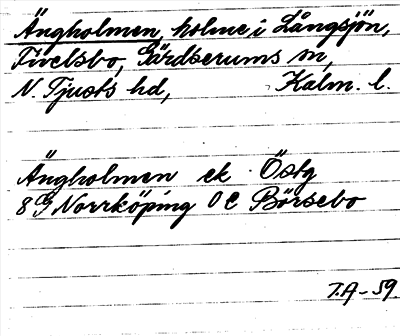 Ängholmen, holme i Långsjön,
Tivelsbo, Gärdserums sn,
N. Tjusts hd, Kalm. l.
Ängholmen ek Östg
8 G Norrköping 0 c Börsebo
T.A-59.